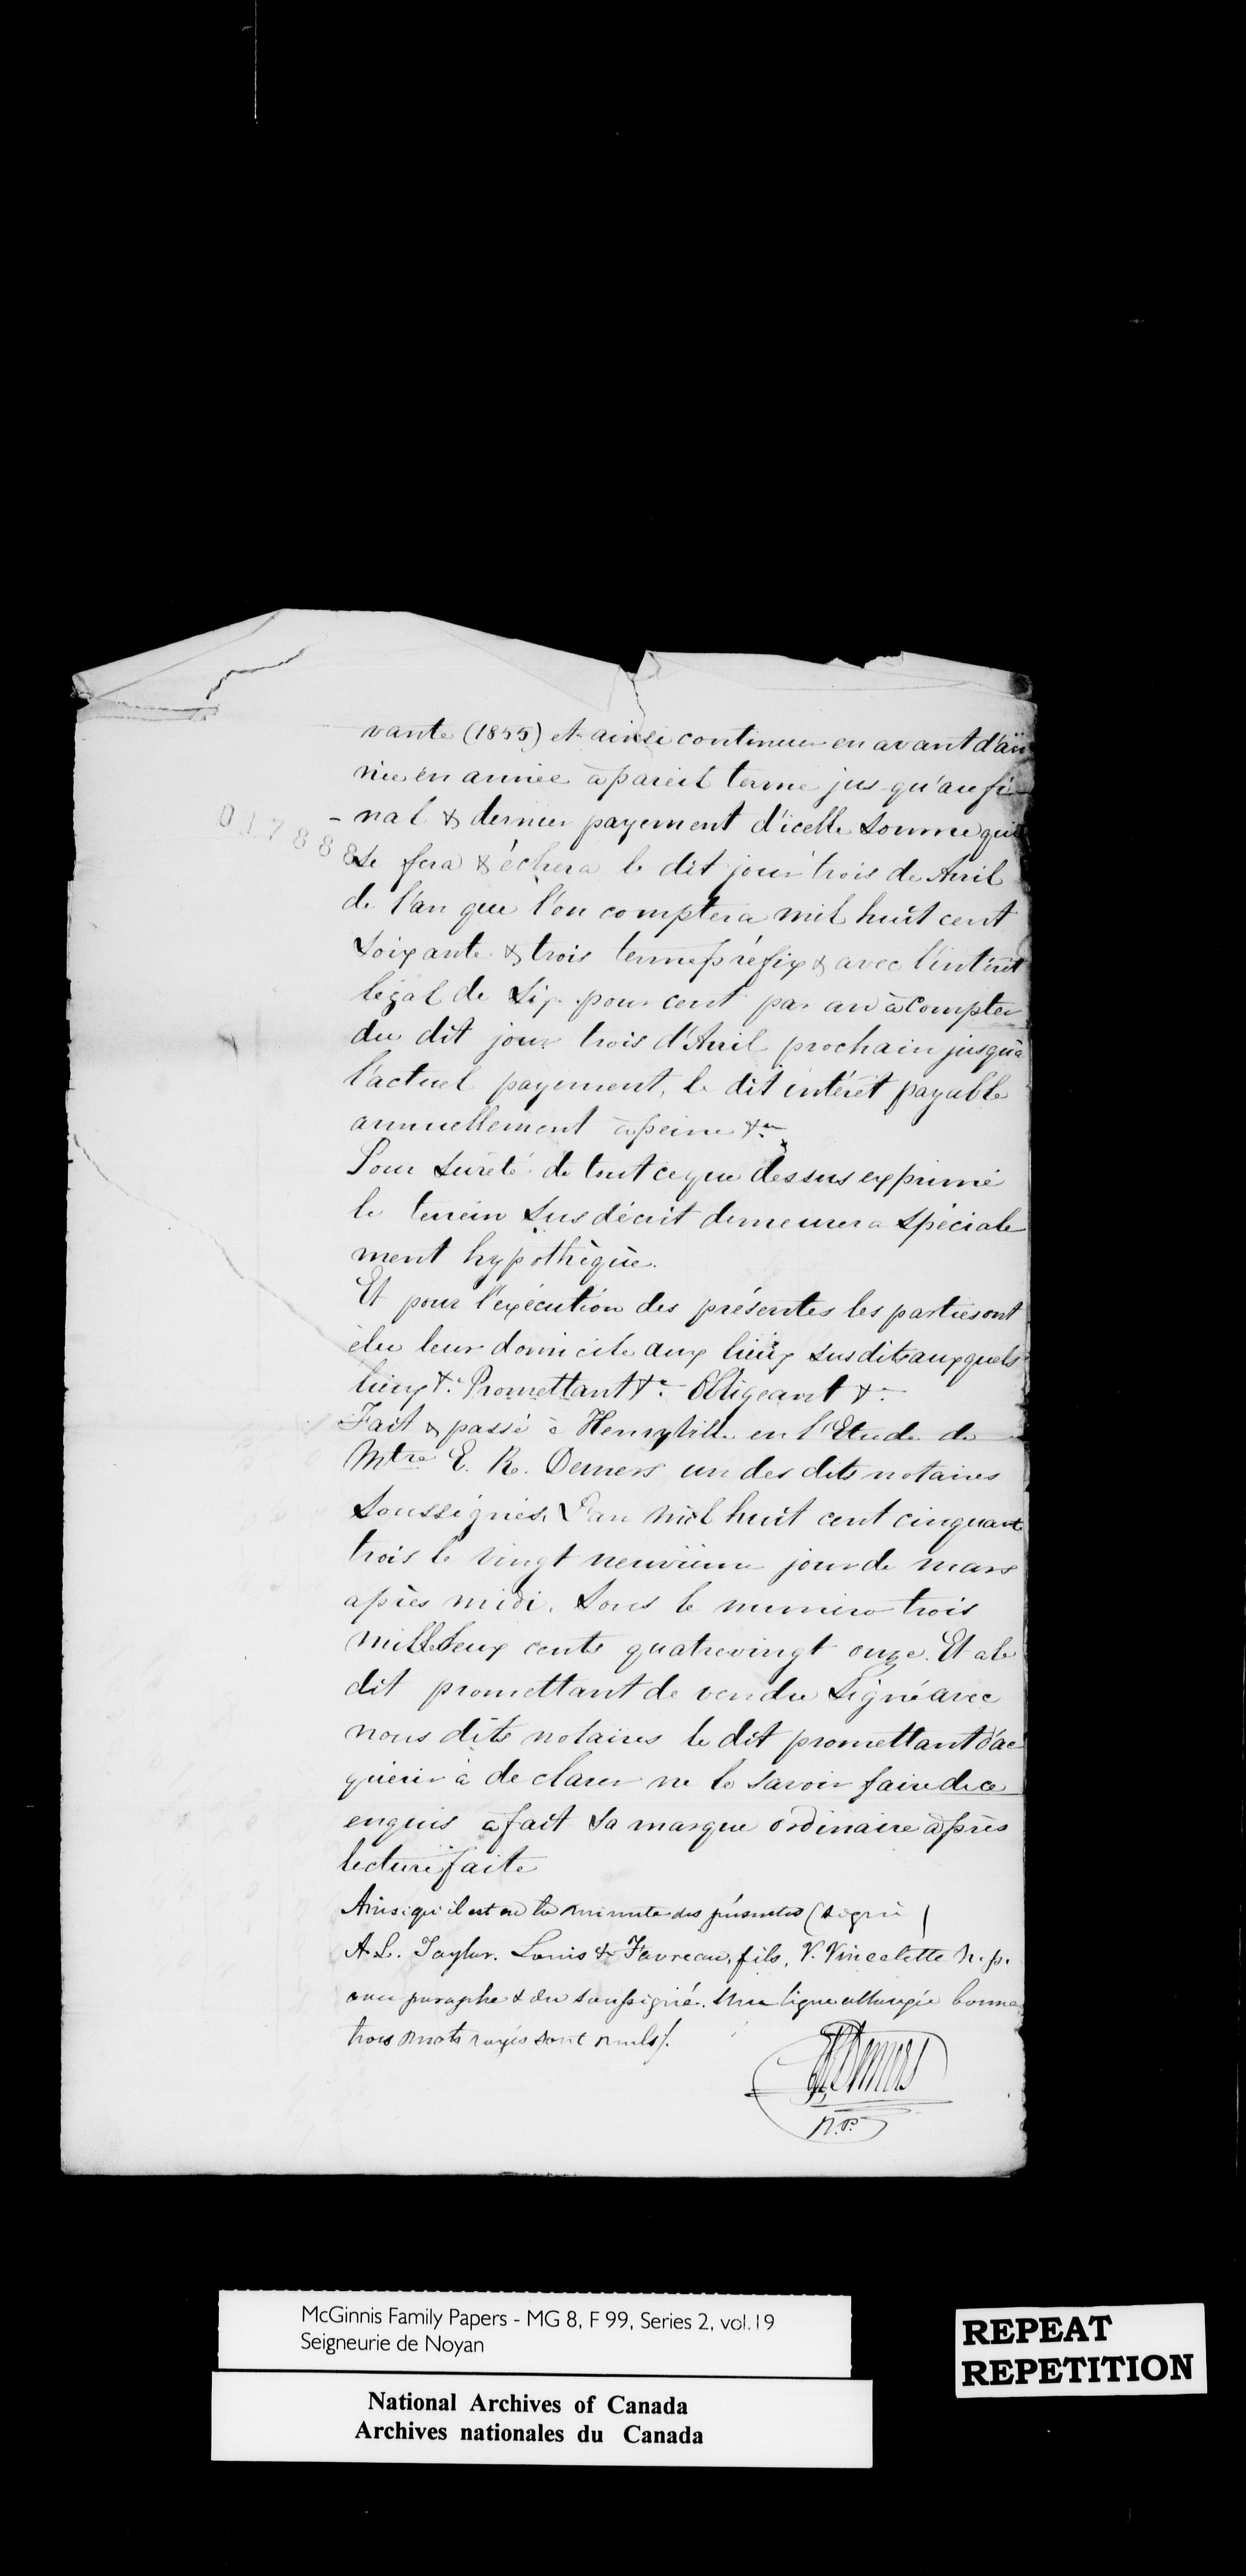 vante (1855) et ainsi continuer en avant d'an
née en année à pareil terme jus-qu'au fi-
-nal & dernier payement d'icelle somme qui
017888
se fera & échera le dit jour trois de Avril
de l'an que l'on comptera mil huit cent
Soixante & trois terme préfix & avec l'intérêt
légal de Six pour cent par an à compter
du dit jour trois d'Avril prochain jusqu'à
l'actuel payement, le dit intérêt payable
annuellement à peine &a
Pour Sureté de tout ce que dessus exprimé
le terrein Sus décrit demeurera Spéciale
ment hypothèqué.
Et pour l'exécution des présentes les parties ont
élu leur domicile aux lieux susdits auxquels
lieux &a Promettant &a Obligeant &a
Fait & passé à Henryville en l'Etude de
Mtre E. R. Demers un des dits notaires
Soussignés. L'an mil huit cent cinquante
trois le vingt neuvième jour de mars
après midi. Sous le numéro trois
mille deux cents quatrevingt onze. Et a le
dit promettant de vendre Signé avec
nous dits notaires le dit promettant d'ac
quérir à déclarer ne le savoir faire de ce
enquis a fait Sa marque ordinaire après
lecture faite
Ainsi qu'il est en la minute des présentes (signé)
A. L. Taylor. Louis + Favreau, fils, V. Vincelette N. p.
avec paraphe & du soussigné. Une ligne allongée bonne
trois mots rayés sont nuls/.
ERDemers
N.P.
McGinnis Family Papers - MG 8, F 99, Series 2, vol.19
Seigneurie de Noyan
National Archives of Canada
Archives nationales du Canada
REPEAT
REPETITION